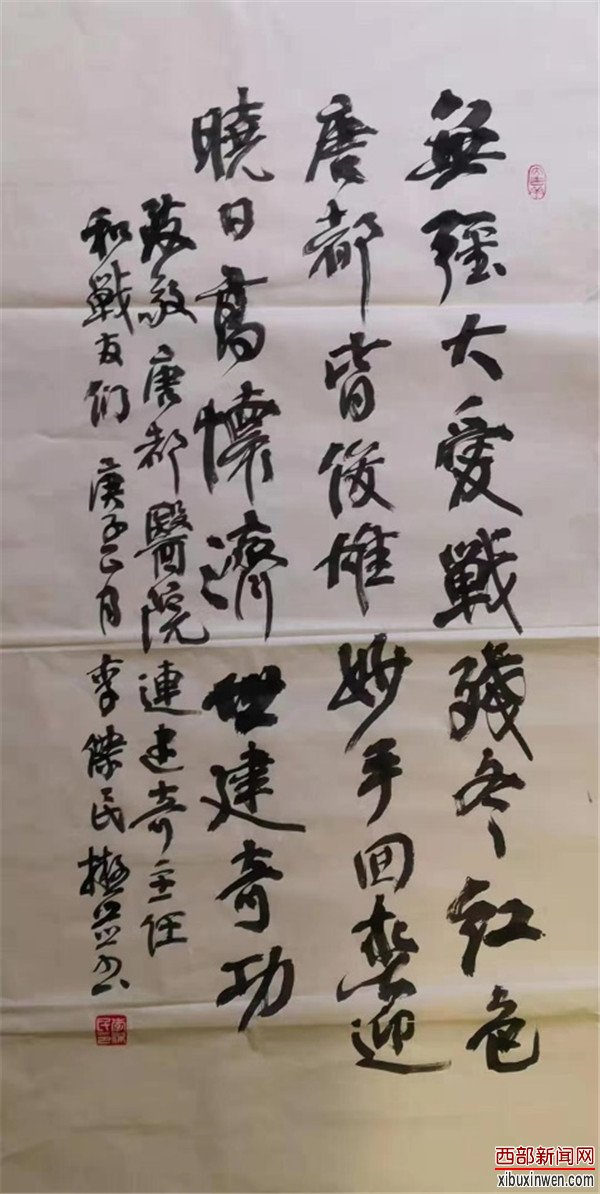 無疆大愛戰殘冬紅色
唐都皆俊雄妙手回春迎
曉日高懷濟世建奇功
致敬唐都醫院連建奇主任
和戰友們 庚子正月 李傑民撰並書
西部新闻网
xibuxinwen.com